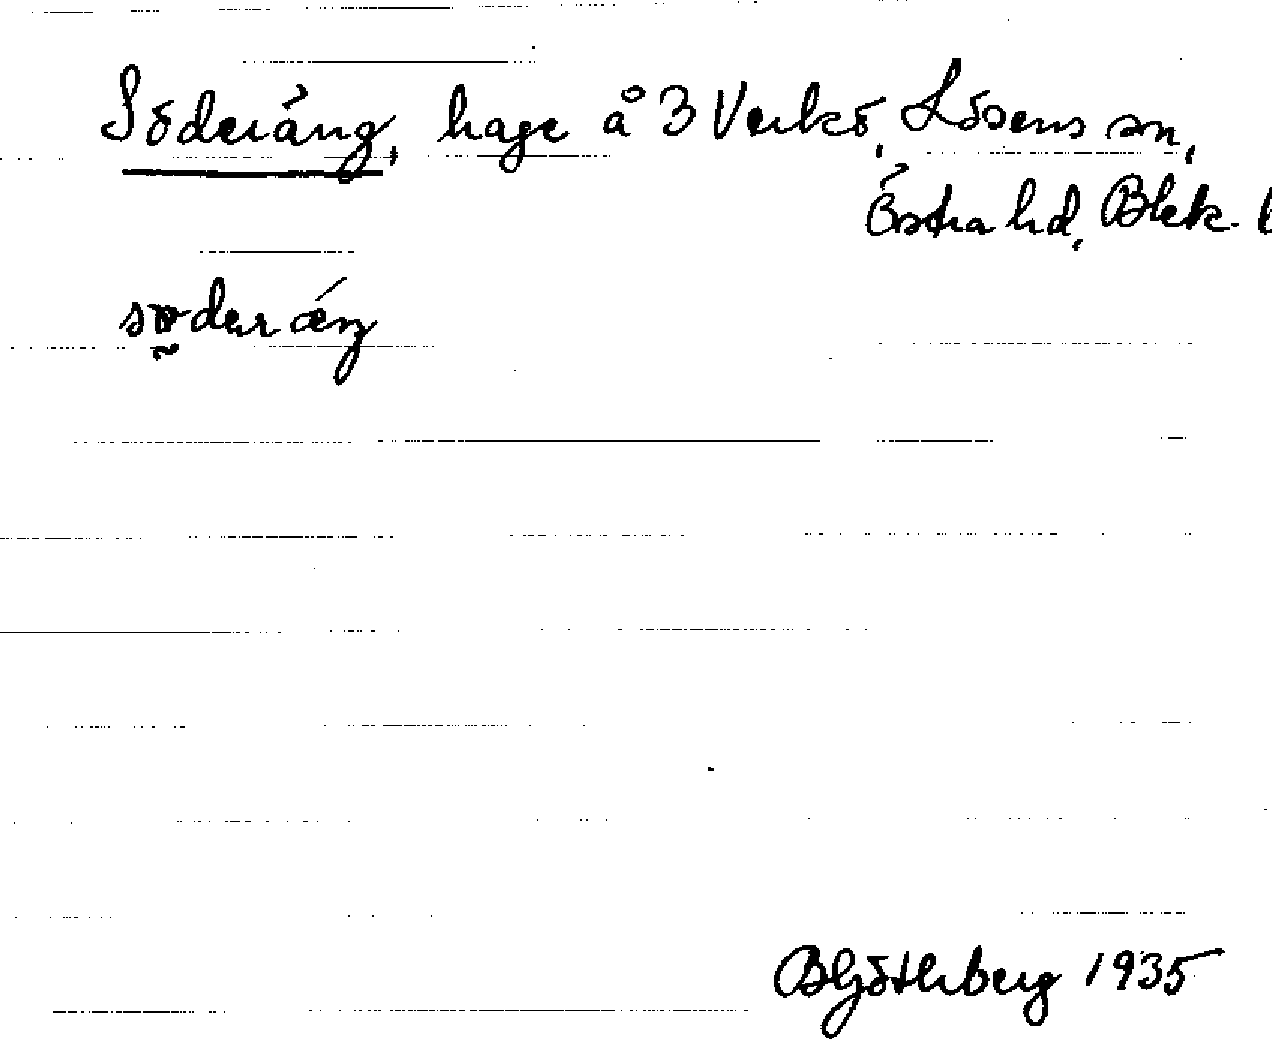 Söderäng, hage å 3 Verkö, Lösens sn,
Östra hd, Blek. l
södər æŋ
BGöthberg 1935